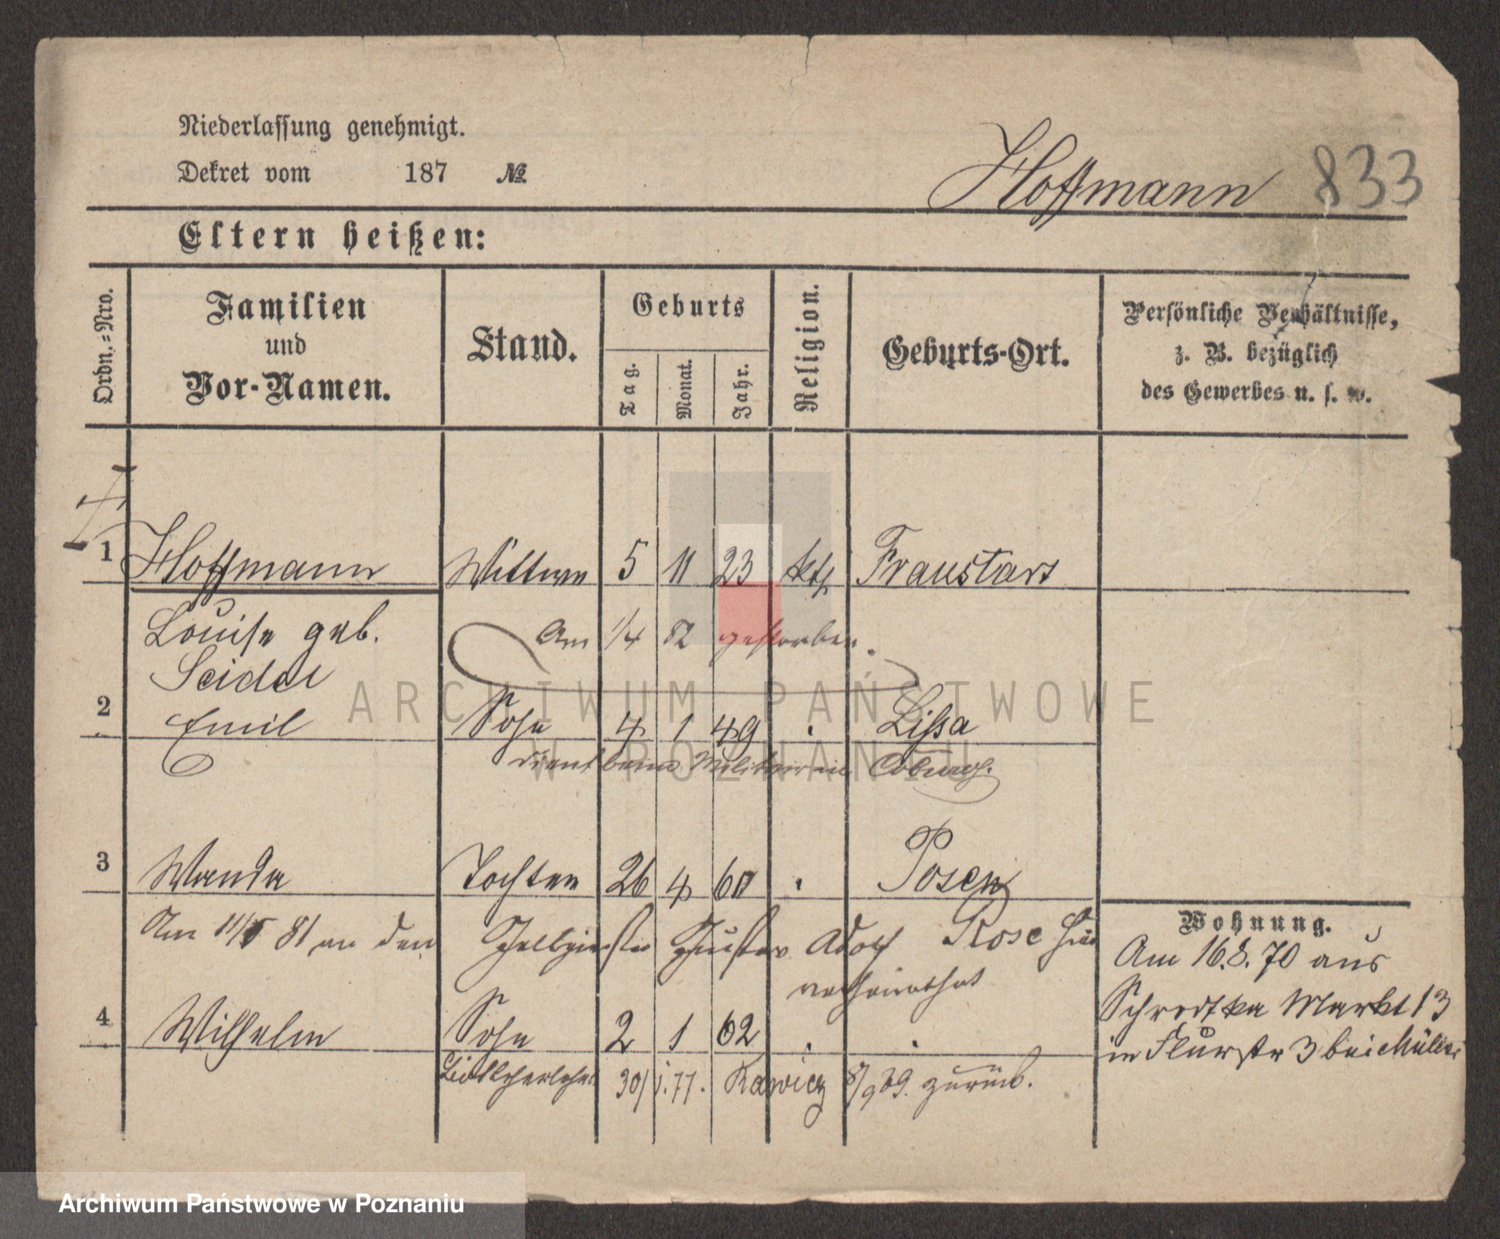 Niederlassung genehmigt.
Dekret vom 187 №
Hoffmann 833
Eltern heißen:
Ordn.-Nro.
Familien
und
Vor-Namen.
Stand.
Geburts
Tag.
Monat.
Jahr.
Religion.
Geburts-Ort.
Persönliche Verhältnisse,
z. B. bezüglich
des Gewerbes u. s. w.
1 Hoffmann Wittwe 5 11 23 kth Fraustadt
Louise geb. Am 1/4 82 gestorben.
Seidel
2 Emil Sohn 4 1 49 " Lissa
dient beim Militair in Coburg.
3 Wanda Tochter 26 4 60 " Posen
Am 11/5 81 an den Gustav Adolf Rose
verheirathet
4 Wilhelm Sohn 2 1 62 " "
30/1.77. Rawicz 8/9 89. zurück.
Wohnung.
Am 16.8.70 aus
Schrodka Markt 13
in Flurstr 3 bei Müller
ARCHIWUM PAŃSTWOWE
W POZNANIU
Archiwum Państwowe w Poznaniu